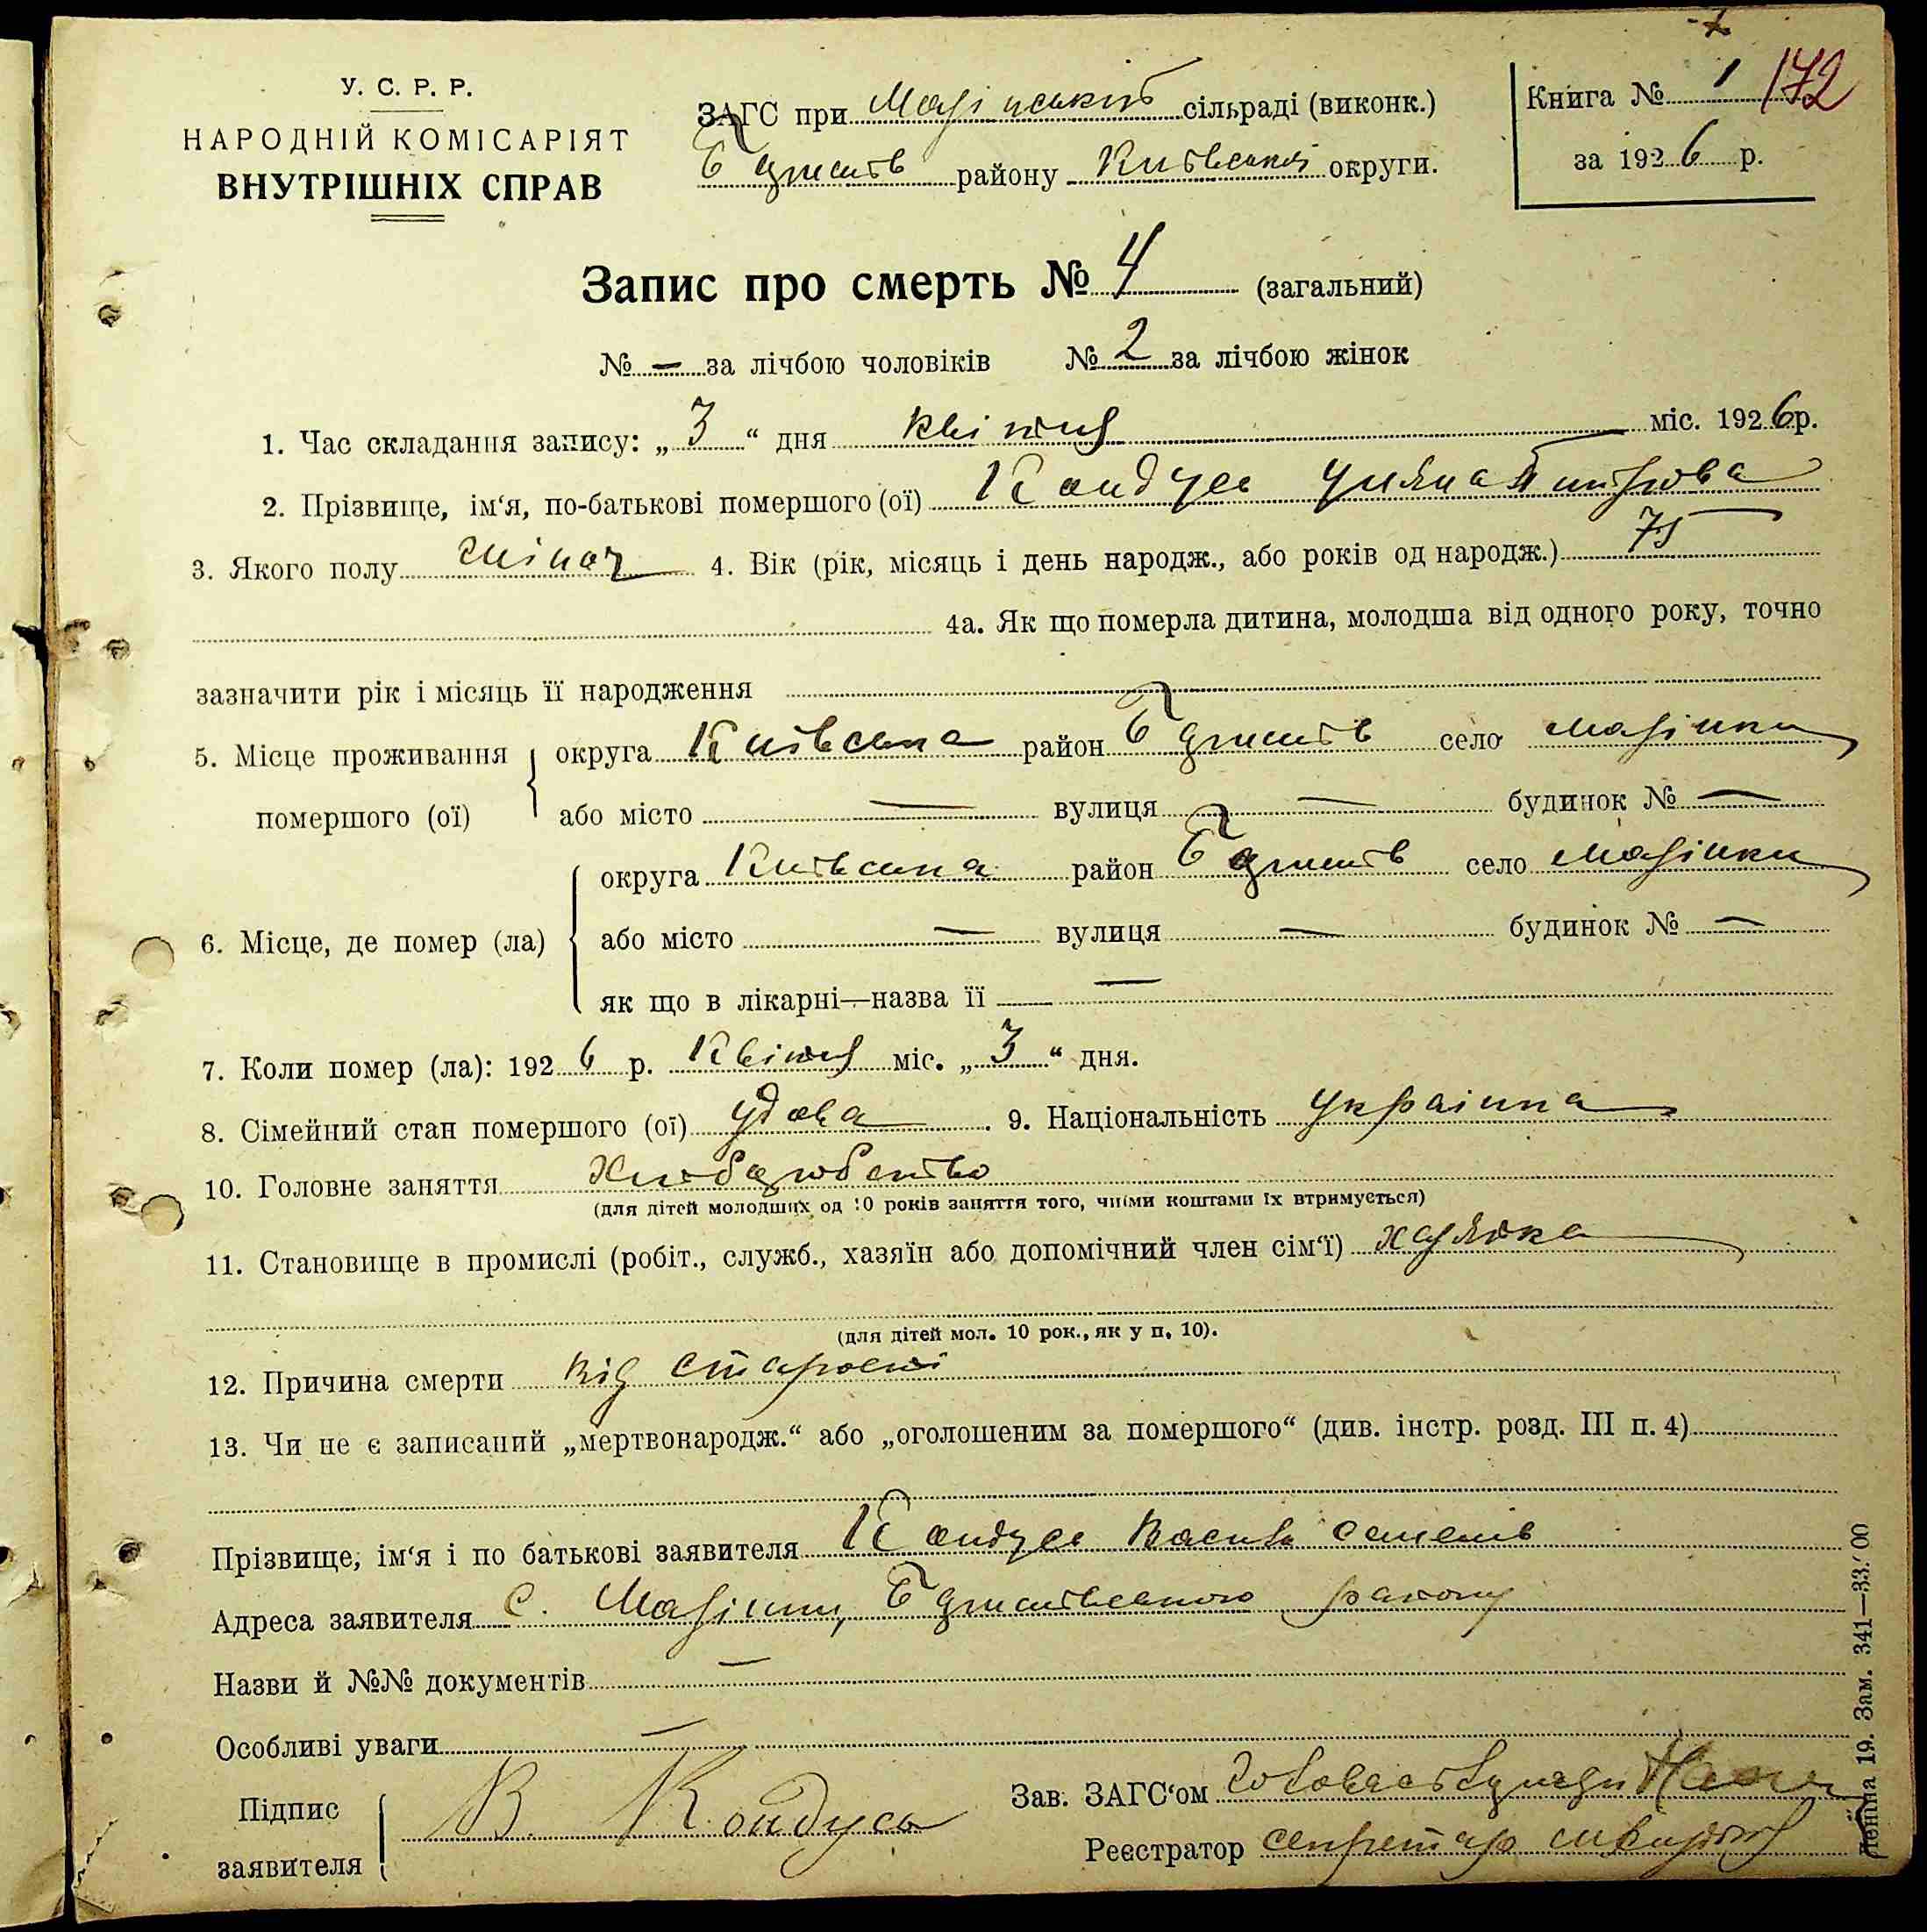 У. С. Р. Р.
НАРОДНІЙ КОМІСАРІЯТ
ВНУТРІШНІХ СПРАВ
ЗАГС при сільраді (виконк.)
району Київської округи.
Книга № 1 172
за 1926 р.
Запис про смерть № 4 (загальний)
№ — за лічбою чоловіків № 2 за лічбою жінок
1. Час складання запису: „3“ дня квітня міс. 1926 р.
2. Прізвище, ім‘я, по-батькові помершого (ої) Кондусь Уляна
3. Якого полу жіноч 4. Вік (рік, місяць і день народж., або років од народж.) 75
4а. Як що померла дитина, молодша від одного року, точно
зазначити рік і місяць її народження
5. Місце проживання помершого (ої) округа Київська район село
або місто — вулиця — будинок № —
6. Місце, де помер (ла) округа Київська район село
або місто — вулиця — будинок № —
як що в лікарні—назва її —
7. Коли помер (ла): 1926 р. Квітня міс. „3“ дня.
8. Сімейний стан помершого (ої) удова. 9. Національність українка
10. Головне заняття Хліборобство
(для дітей молодших од 10 років заняття того, чиїми коштами їх втримується)
11. Становище в промислі (робіт., служб., хазяїн або допомічний член сім‘ї) хазяйка
(для дітей мол. 10 рок., як у п. 10).
12. Причина смерти від старости
13. Чи не є записаний „мертвонародж.“ або „оголошеним за помершого“ (див. інстр. розд. III п. 4)
Прізвище, ім‘я і по батькові заявителя Кондусь Василь Семенів
Адреса заявителя с. району
Назви й №№ документів —
Особливі уваги —
Підпис заявителя В. Кондусь
Зав. ЗАГС‘ом Голова сільради
Реєстратор секретар
19. Зам. 341—33